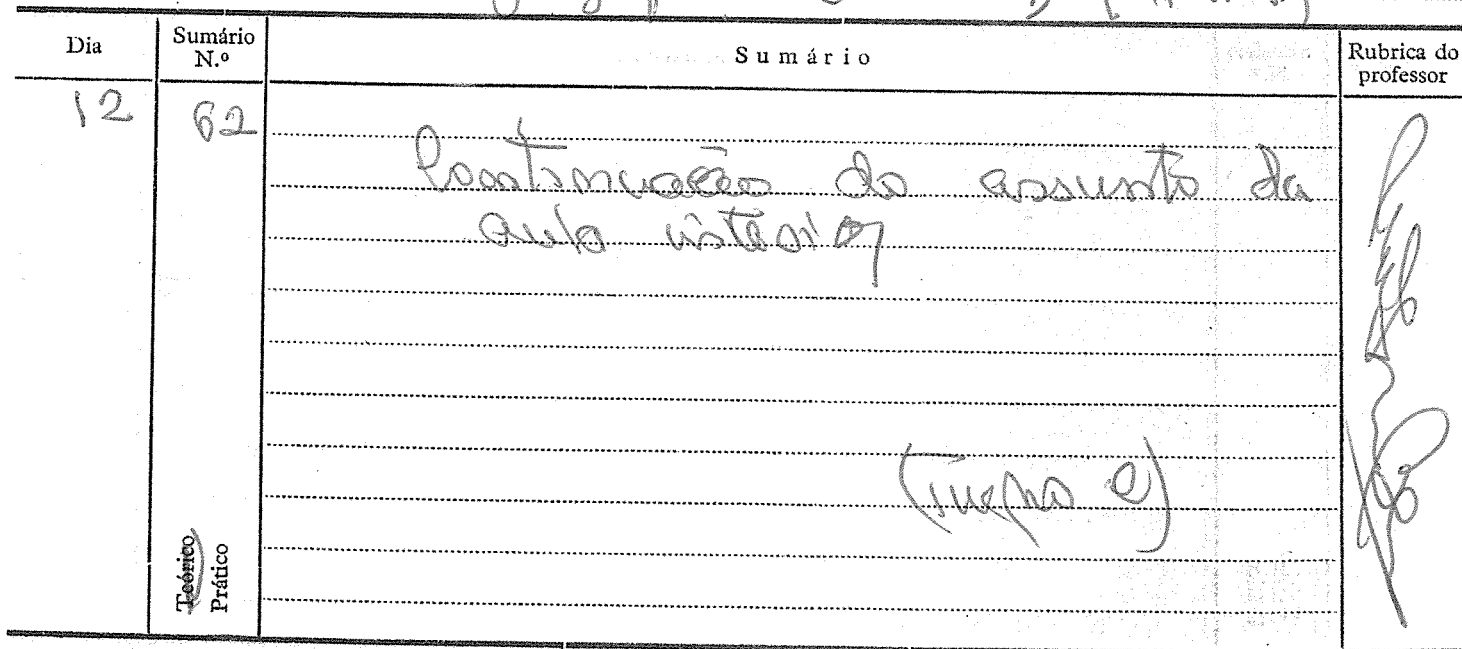 Dia Sumário N.º Sumário Rubrica do professor
12 62 Continuação do assunto da
aula anterior
(Turma e)
Teórico
Prático